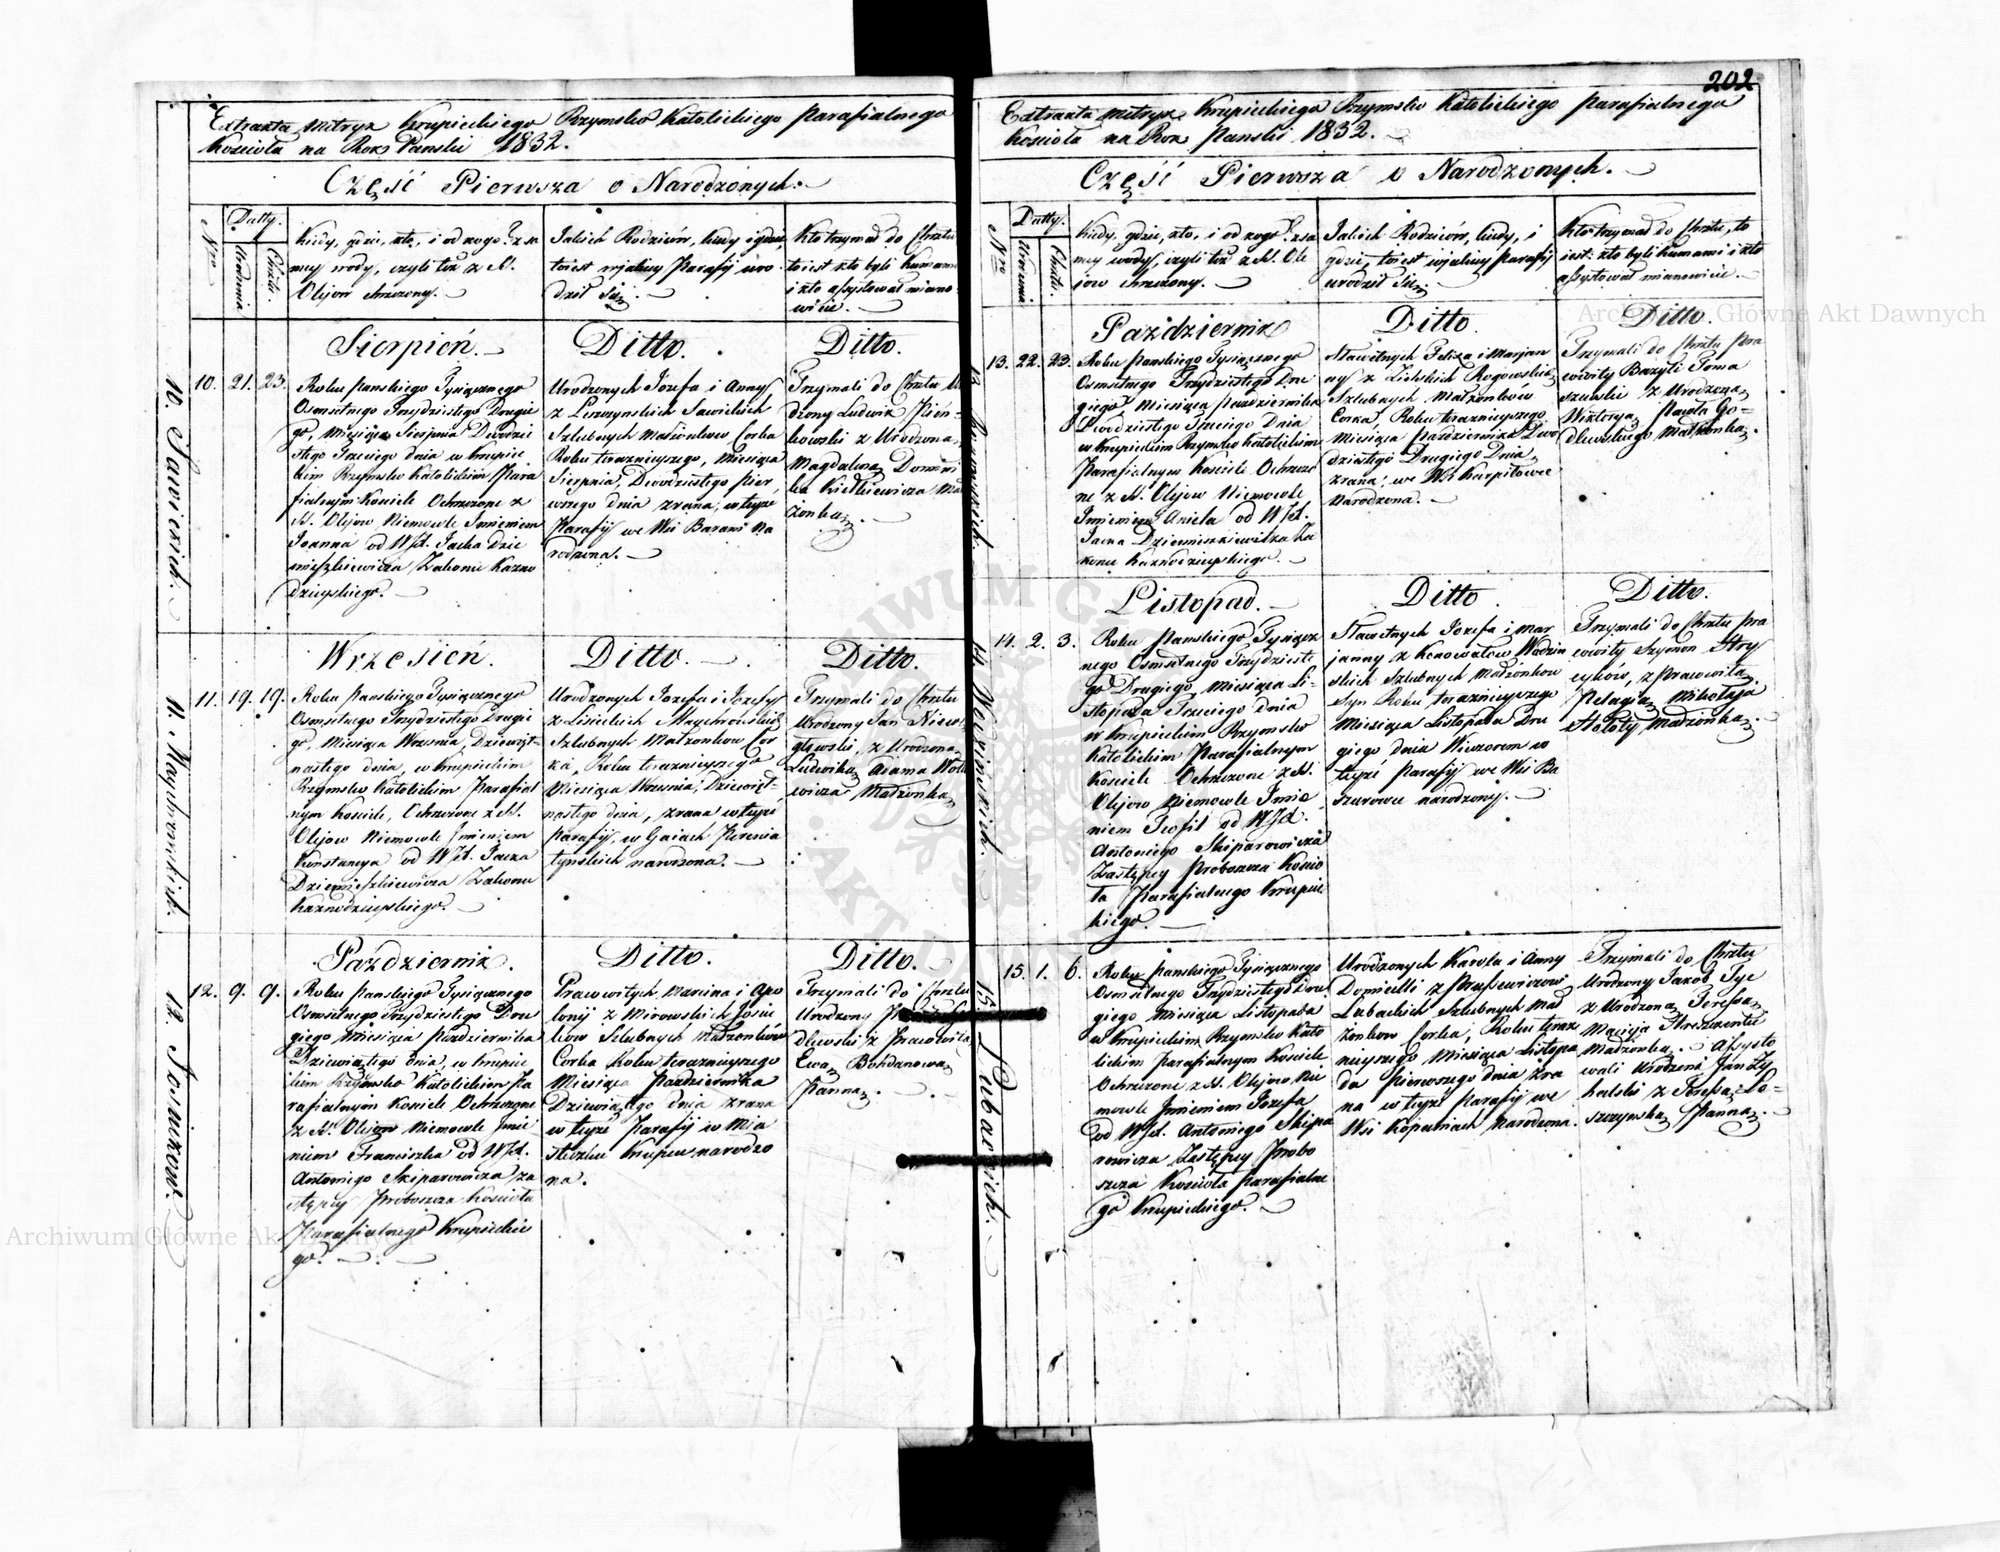 Extrakta Metryk Krupieckiego Rzymsko Katolickiego Parafialnego
Kościoła na Rok Panski 1832.
Część Pierwsza o Narodzonych.
Nro
Datty.
Urodzenia
Chrztu
Kiedy, gdzie, kto, i od kogo? z sa
mey wody, czyli też z SS.
Olejow chrzczony.
Jakich Rodziców, kiedy i gdzie,
toiest w jakiey Parafij uro
dził Się.
Kto trzymał do Chrztu
toiest kto byli kumami
i kto assystował miano
wicie.
Sierpień.
Ditto.
Ditto.
10. Sawickich.
10. 21. 23.
Roku Panskiego Tysiącznego
Osmsetnego Trzydziestego Drugie
go, Miesiąca Sierpnia Dwudzie
stego Trzeciego dnia w Krupiec
kim Rzymsko Katolickim Para
fialnym Kosciele Ochrzczone z
SS. Olejow Niemowle Imieniem
Joanna od WJX. Jacka Dzie
mieszkiewicza Zakonu Kazno
dzieyskiego.
Urodzonych Jozefa i Anny
z Leszczynskich Sawickich
Szlubnych Małżonkow Corka
Roku teraznieyszego, Miesiąca
Sierpnia, Dwudziestego Pier
wszego dnia zrana, w teyże
Parafij we Wsi Barani Na
rodzona.
Trzymali do Chrztu U
rodzony Ludwik Pień-
kowski z Urodzoną
Magdaleną Domini
ka Kiełkiewicza Mał
żonką.
Wrzesień.
Ditto.
Ditto.
11. Maychrowskich.
11. 19. 19.
Roku Panskiego Tysiącznego
Osmsetnego Trzydziestego Drugie
go, Miesiąca Wrzesnia, Dziewięt-
nastego dnia, w Krupieckim
Rzymsko Katolickim Parafial
nym Kosciele, Ochrzczone z SS.
Olejow Niemowle Imieniem
Konstancya od WJX. Jacka
Dziemieszkiewicza Zakonu
Kaznodzieyskiego.
Urodzonych Jozefa i Jozefy
z Lisieckich Maychrowskich
Szlubnych Małżonkow Cor
ka, Roku teraznieyszego
Miesiąca Wrzesnia, Dziewięt-
nastego dnia, zrana w teyże
Parafij, w Gaiach Perewia
tynskich narodzona.
Trzymali do Chrztu
Urodzony Jan Niew-
głowski, z Urodzoną
Ludwiką Adama Woll
wicza Małżonką
Październik.
Ditto.
Ditto.
12. Josiukow.
12. 9. 9.
Roku Panskiego Tysiącznego
Osmsetnego Trzydziestego Dru
giego Miesiąca Października
Dziewiątego dnia, w Krupiec
kim Rzymsko Katolickim Pa
rafialnym Kosciele Ochrzczone
z SS. Olejow Niemowle Imie
niem Franciszka od WJX.
Antoniego Skiparowicza Za
stępcy Proboszcza Kościoła
Parafialnego Krupieckie
go.
Pracowitych Marcina i Apo
lonij z Mirowskich Josiu
kow Szlubnych Małżonków
Corka Roku teraznieyszego
Miesiąca Października
Dziewiątego dnia zrana
w teyże Parafij w Mia
steczku Krupcu narodzo
na.
Trzymali do Chrztu
Urodzony
dlewski z Pracowitą
Ewą Bohdanową
Panną.
202
Extrakta Metryk Krupieckiego Rzymsko Katolickiego Parafialnego
Kościoła na Rok Panski 1832.
Część Pierwsza o Narodzonych.
Nro
Datty.
Urodzenia
Chrztu.
Kiedy, gdzie, kto, i od kogo? z sa
mey wody, czyli też z SS. Ole
jow chrzczony.
Jakich Rodziców, kiedy, i
gdzie, toiest w jakiey Parafij
urodził Się.
Kto trzymał do Chrztu, to
iest: kto byli kumami i kto
assystował mianowicie.
Październik
Ditto.
Ditto.
13. Rogowskich.
13. 22. 23.
Roku Panskiego Tysiącznego
Osmsetnego Trzydziestego Dru
giego, Miesiąca Października
Dwudziestego Trzeciego Dnia
w Krupieckim Rzymsko Katolickim
Parafialnym Kosciele Ochrzczo
ne z SS. Olejow Niemowle
Imieniem Aniela od WJX.
Jacka Dziemieszkiewicza Za
konu Kaznodzieyskiego.
Sławetnych Felixa i Marjan
ny z Zielskich Rogowskich
Szlubnych Małżonków
Corka, Roku teraznieyszego
Miesiąca Października Dwu
dziestego Drugiego Dnia
zrana, we Wsi Karpiłowce
Narodzona.
Trzymali do Chrztu Pra
cowity Bazyli Toma
szewski z Urodzoną
Wiktoryą Pawła Go-
dlewskiego Małżonką.
Listopad.
Ditto
Ditto.
14. Wodzinskich.
14. 2. 3.
Roku Panskiego Tysiącz
nego Osmsetnego Trzydzieste
go Drugiego, Miesiąca Li-
stopada Trzeciego dnia
w Krupieckim Rzymsko
Katolickim Parafialnym
Kosciele Ochrzczone z SS.
Olejow Niemowle Imie
niem Teofil od WJX.
Antoniego Skiparowicza
Zastępcy Proboszcza Koscio
ła Parafialnego Krupiec
kiego.
Sławetnych Jozefa i Mar
janny z Konowałow Wodzin
skich Szlubnych Małżonkow
Syn Roku teraznieyszego
Miesiąca Listopada Dru
giego dnia Wieczorem w
teyże Parafij we Wsi Ba
szarowce narodzony.
Trzymali do Chrztu Pra
cowity Szymon Hry
cyków, z Pracowitą
Pelagią Mikołaja
Hołoty Małżonką.
15. Lubackich.
15. 1. 6.
Roku Panskiego Tysiącznego
Osmsetnego Trzydziestego Dru
giego Miesiąca Listopada
w Krupieckim Rzymsko Kato
lickim Parafialnym Kosciele
Ochrzczone z SS. Olejow Nie
mowle Imieniem Jozefa
od WJX. Antoniego Skipa
rowicza Zastępcy Probo
szcza Kościoła Parafialne
go Krupieckiego.
Urodzonych Karola i Anny
Domicelli z Przysiewiczow
Lubackich Szlubnych Mał
żonkow Corka, Roku teraz
nieyszego Miesiąca Listopa
da Pierwszego dnia zra
na w teyże Parafij we
Wsi Kopaniach Narodzona.
Trzymali do Chrztu
Urodzony Jakob Tye
z Urodzoną Teressą
Macieja
Małżonką. Assysto
wali Urodzeni Jan
z Teressą Lo-
szczynską Panną.
Archiwum Główne Akt Dawnych
Archiwum Główne Akt Dawnych